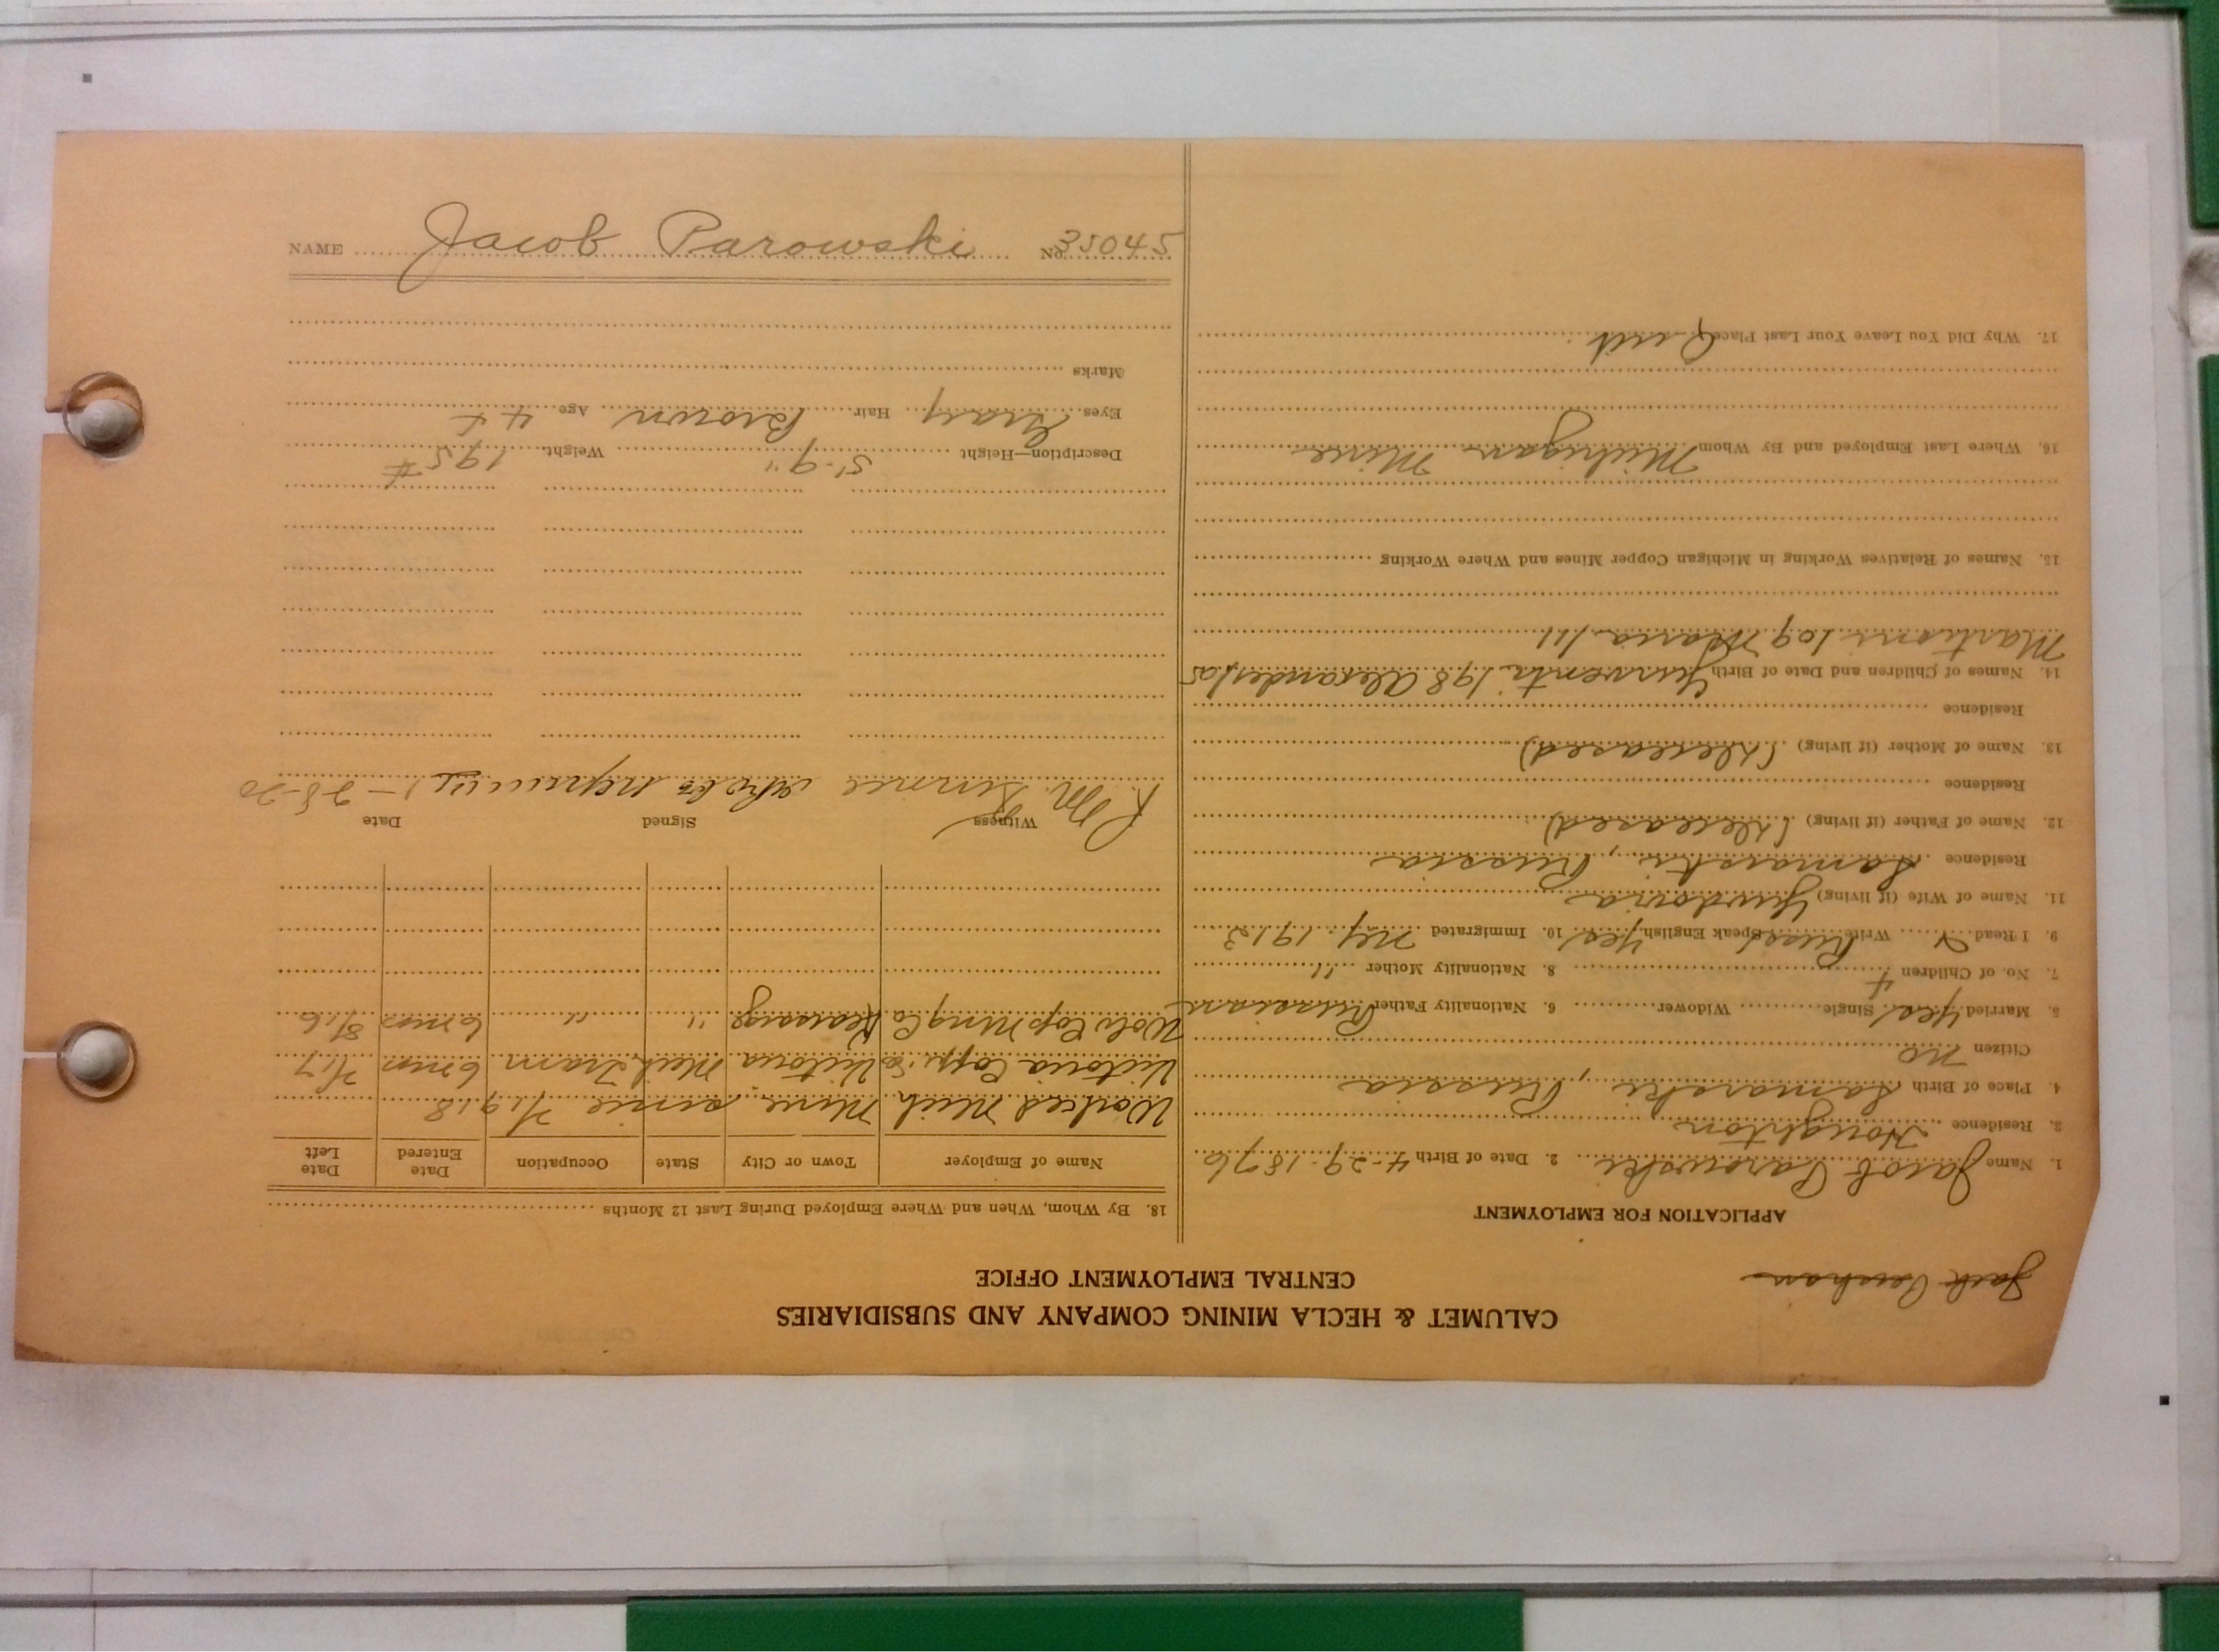 Jack
CALUMET & HECLA MINING COMPANY AND SUBSIDIARIES
CENTRAL EMPLOYMENT OFFICE
APPLICATION FOR EMPLOYMENT
1. Name Jacob Parowski 2. Date of Birth 4-29-1876
3. Residence Houghton
4. Place of Birth Samarski, Russia
Citizen no
5. Married Yes Single Widower 6. Nationality Father Russian
7. No. of Children 4 8. Nationality Mother "
9. I Read Write Russ Speak English Yes 10. Immigrated NY. 1912
11. Name of Wife (if living)
Residence Samarski, Russia
12. Name of Father (if living) (Deceased)
Residence
13. Name of Mother (if living) (Deceased)
Residence
14. Names of Children and Date of Birth 198 Alexander/05
Martin 109 Maria/11
15. Names of Relatives Working in Michigan Copper Mines and Where Working
16. Where Last Employed and By Whom Michigan Mine
17. Why Did You Leave Your Last Place Quit
18. By Whom, When and Where Employed During Last 12 Months
Name of Employer Town or City State Occupation Date Entered Date Left
Worked Mich Mine since 7/1918
Victoria Copp. Co Victoria Mich Tram 6 mos 7/17
Wolv Cop Ming Co Kearsarge " " 6 mos 8/16
Witness Signed Date
R. M. 1-28-20
Description—Height 5'-9" Weight 195#
Eyes Gray Hair Brown Age 44
Marks
NAME Jacob Parowski No. 35045